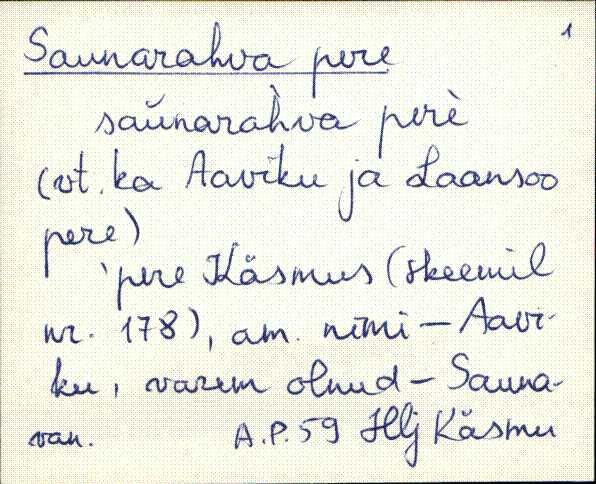 1
Saunarahva pere
saŭnarahva perè
(vt. ka Aaviku ja Laansoo
pere)
'pere Käsmus (skeemil
nr. 178), am. nimi – Aavi-
ku, varem olnud – Sauna-
van. A.P. 59 Hlj Käsmu